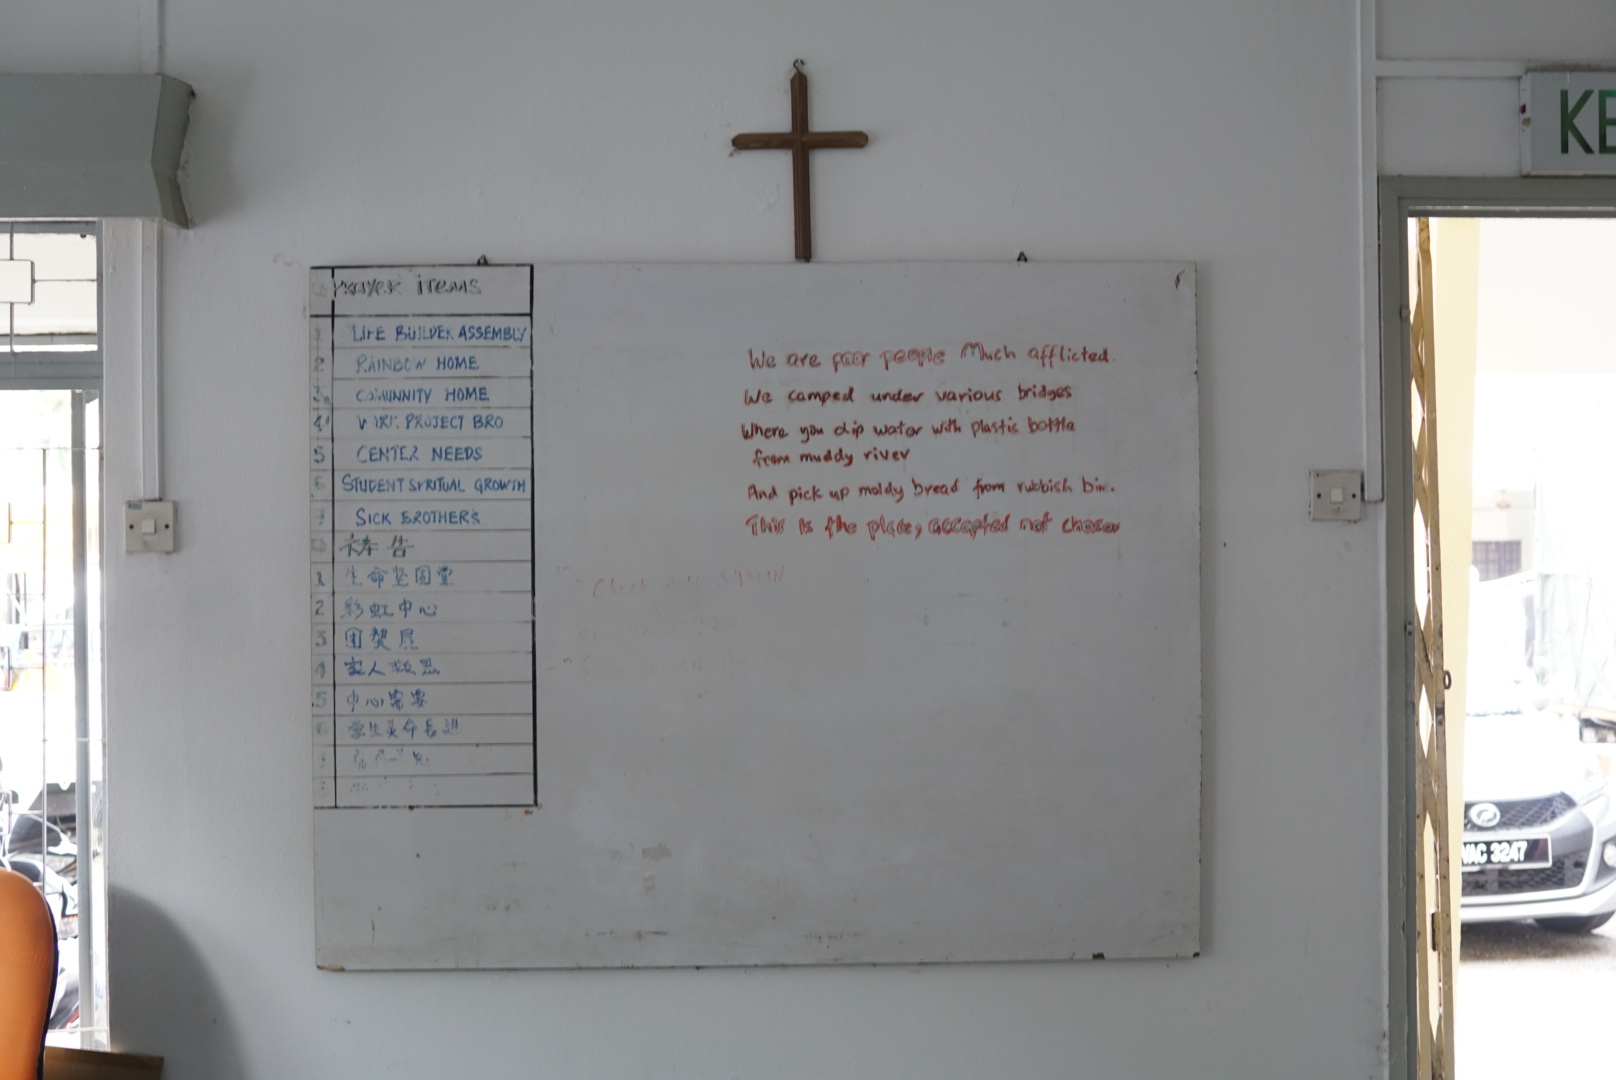 Prayer items
1 LIFE BUILDER ASSEMBLY
2 RAINBOW HOME
3 COMUNNITY HOME
4 PROJECT BRO
5 CENTER NEEDS
6 STUDENT SPRITUAL GROWTH
7 SICK BROTHERS
祷告
1 生命坚固堂
2 彩虹中心
3 团契居
4 家人
5 中心需要
6 学生灵命长进
We are poor people Much afflicted.
We camped under various bridges
Where you dip water with plastic bottle
from muddy river
And pick up moldy bread from rubbish bin.
This is the place, accepted not chosen
KE
VAC 3247